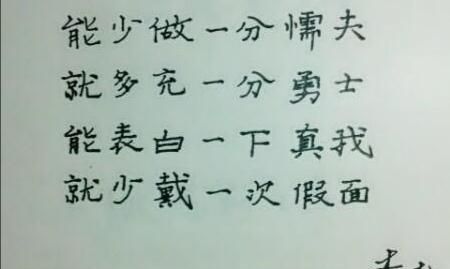 能少做一分懦夫
就多充一分勇士
能表白一下真我
就少戴一次假面